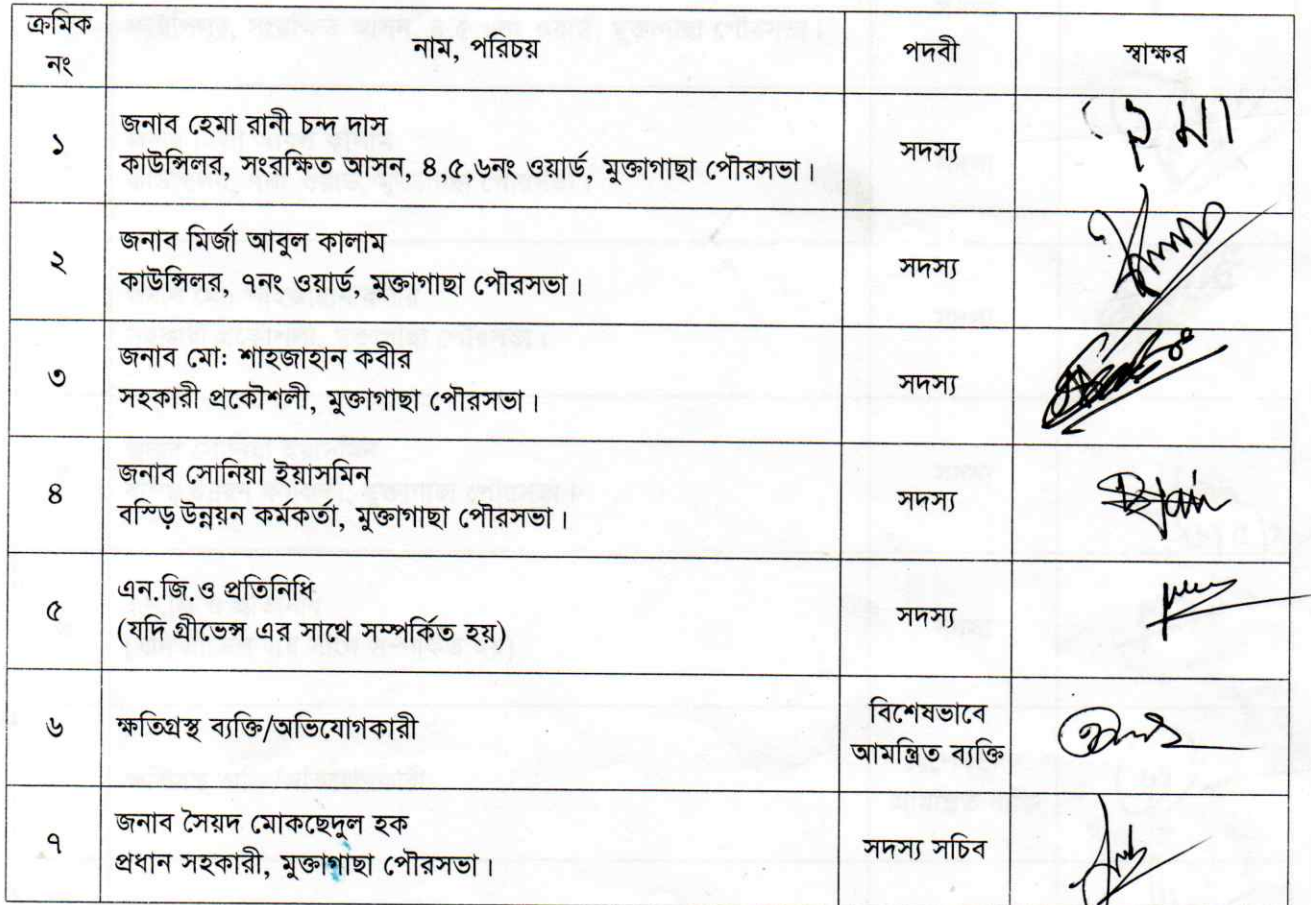 ক্রমিক নং	নাম, পরিচয়	পদবী	স্বাক্ষর
১	জনাব হেমা রানী চন্দ দাস
কাউন্সিলর, সংরক্ষিত আসন, ৪,৫,৬নং ওয়ার্ড, মুক্তাগাছা পৌরসভা।	সদস্য
২	জনাব মির্জা আবুল কালাম
কাউন্সিলর, ৭নং ওয়ার্ড, মুক্তাগাছা পৌরসভা।	সদস্য
৩	জনাব মো: শাহজাহান কবীর
সহকারী প্রকৌশলী, মুক্তাগাছা পৌরসভা।	সদস্য
৪	জনাব সোনিয়া ইয়াসমিন
বস্ড়ি উন্নয়ন কর্মকর্তা, মুক্তাগাছা পৌরসভা।	সদস্য
৫	এন.জি.ও প্রতিনিধি
(যদি গ্রীভেন্স এর সাথে সম্পর্কিত হয়)	সদস্য
৬	ক্ষতিগ্রস্থ ব্যক্তি/অভিযোগকারী	বিশেষভাবে
আমন্ত্রিত ব্যক্তি
৭	জনাব সৈয়দ মোকছেদুল হক
প্রধান সহকারী, মুক্তাগাছা পৌরসভা।	সদস্য সচিব